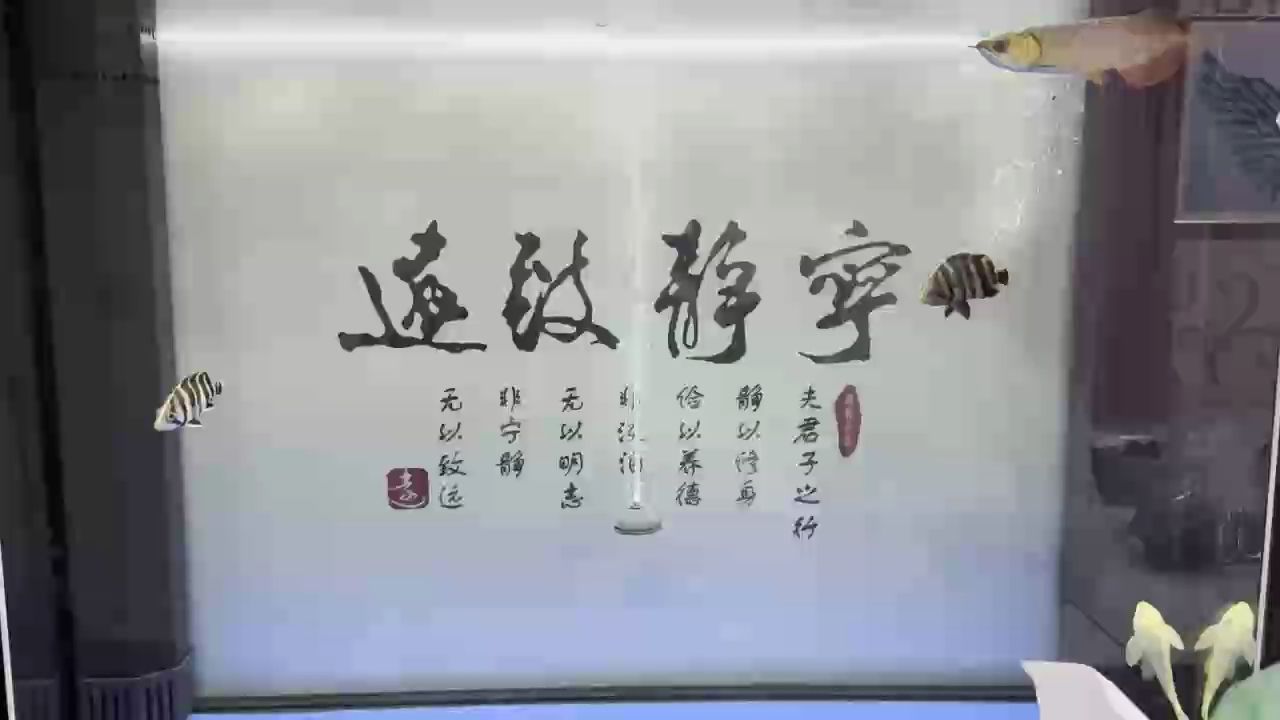 寧静致遠
夫君子之行
静以修身
俭以养德
非淡泊
无以明志
非宁静
无以致远